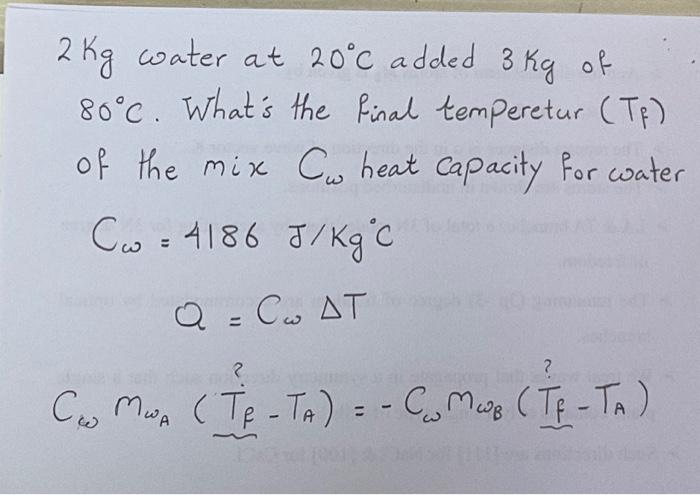 2 Kg water at 20°C added 3 Kg of
80°C. What's the final temperetur (Tf)
of the mix Cw heat capacity for water
Cw = 4186 J/Kg°C
Q = Cw ΔT
? ?
Cw mwA (Tf - TA) = - Cw mwB (Tf - TA)